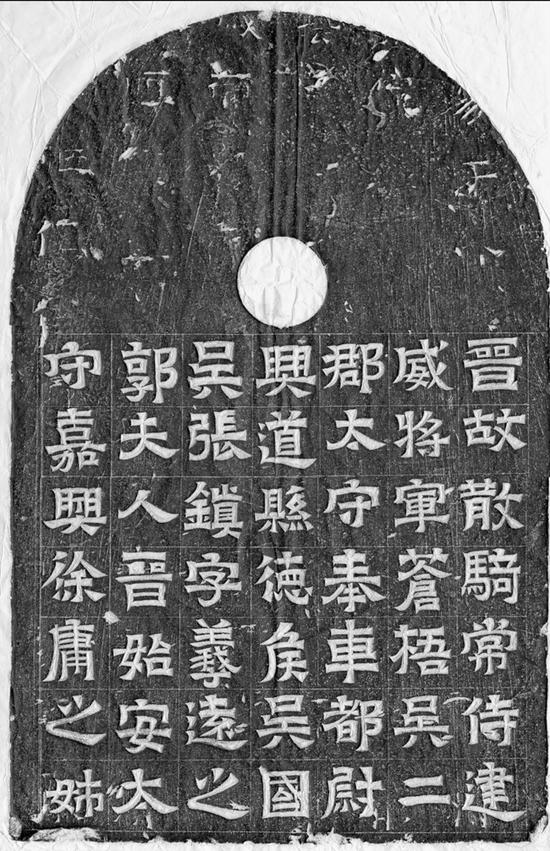 晉故散騎常侍建
威將軍蒼梧吳二
郡太守奉車都尉
興道縣德侯吳國
吳張鎮字羲遠之
郭夫人晉始安太
守嘉興徐庸之姊